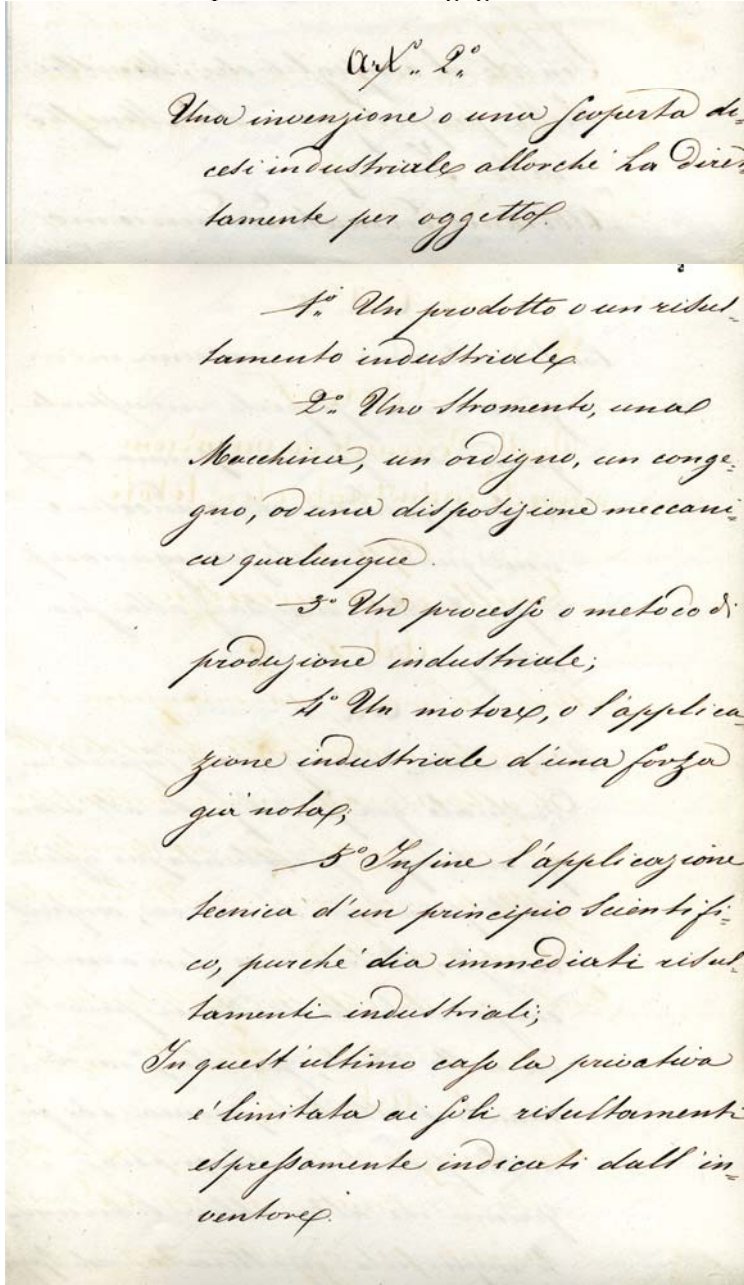 Art.° 2.°
Una invenzione o una scoperta di-
cesi industriale allorché ha diret-
tamente per oggetto.
1.° Un prodotto o un risul-
tamento industriale
2.° Uno stromento, una
Macchina, un ordigno, un conge-
gno, od una disposizione meccani-
ca qualunque.
3° Un processo o metodo di
produzione industriale;
4° Un motore, o l'applica-
zione industriale d'una forza
già nota;
5° Infine l'applicazione
tecnica d'un principio scientifi-
co, purché dia immediati risul-
tamenti industriali;
In quest'ultimo caso la privativa
è limitata ai soli risultamenti
espressamente indicati dall'in-
ventore.